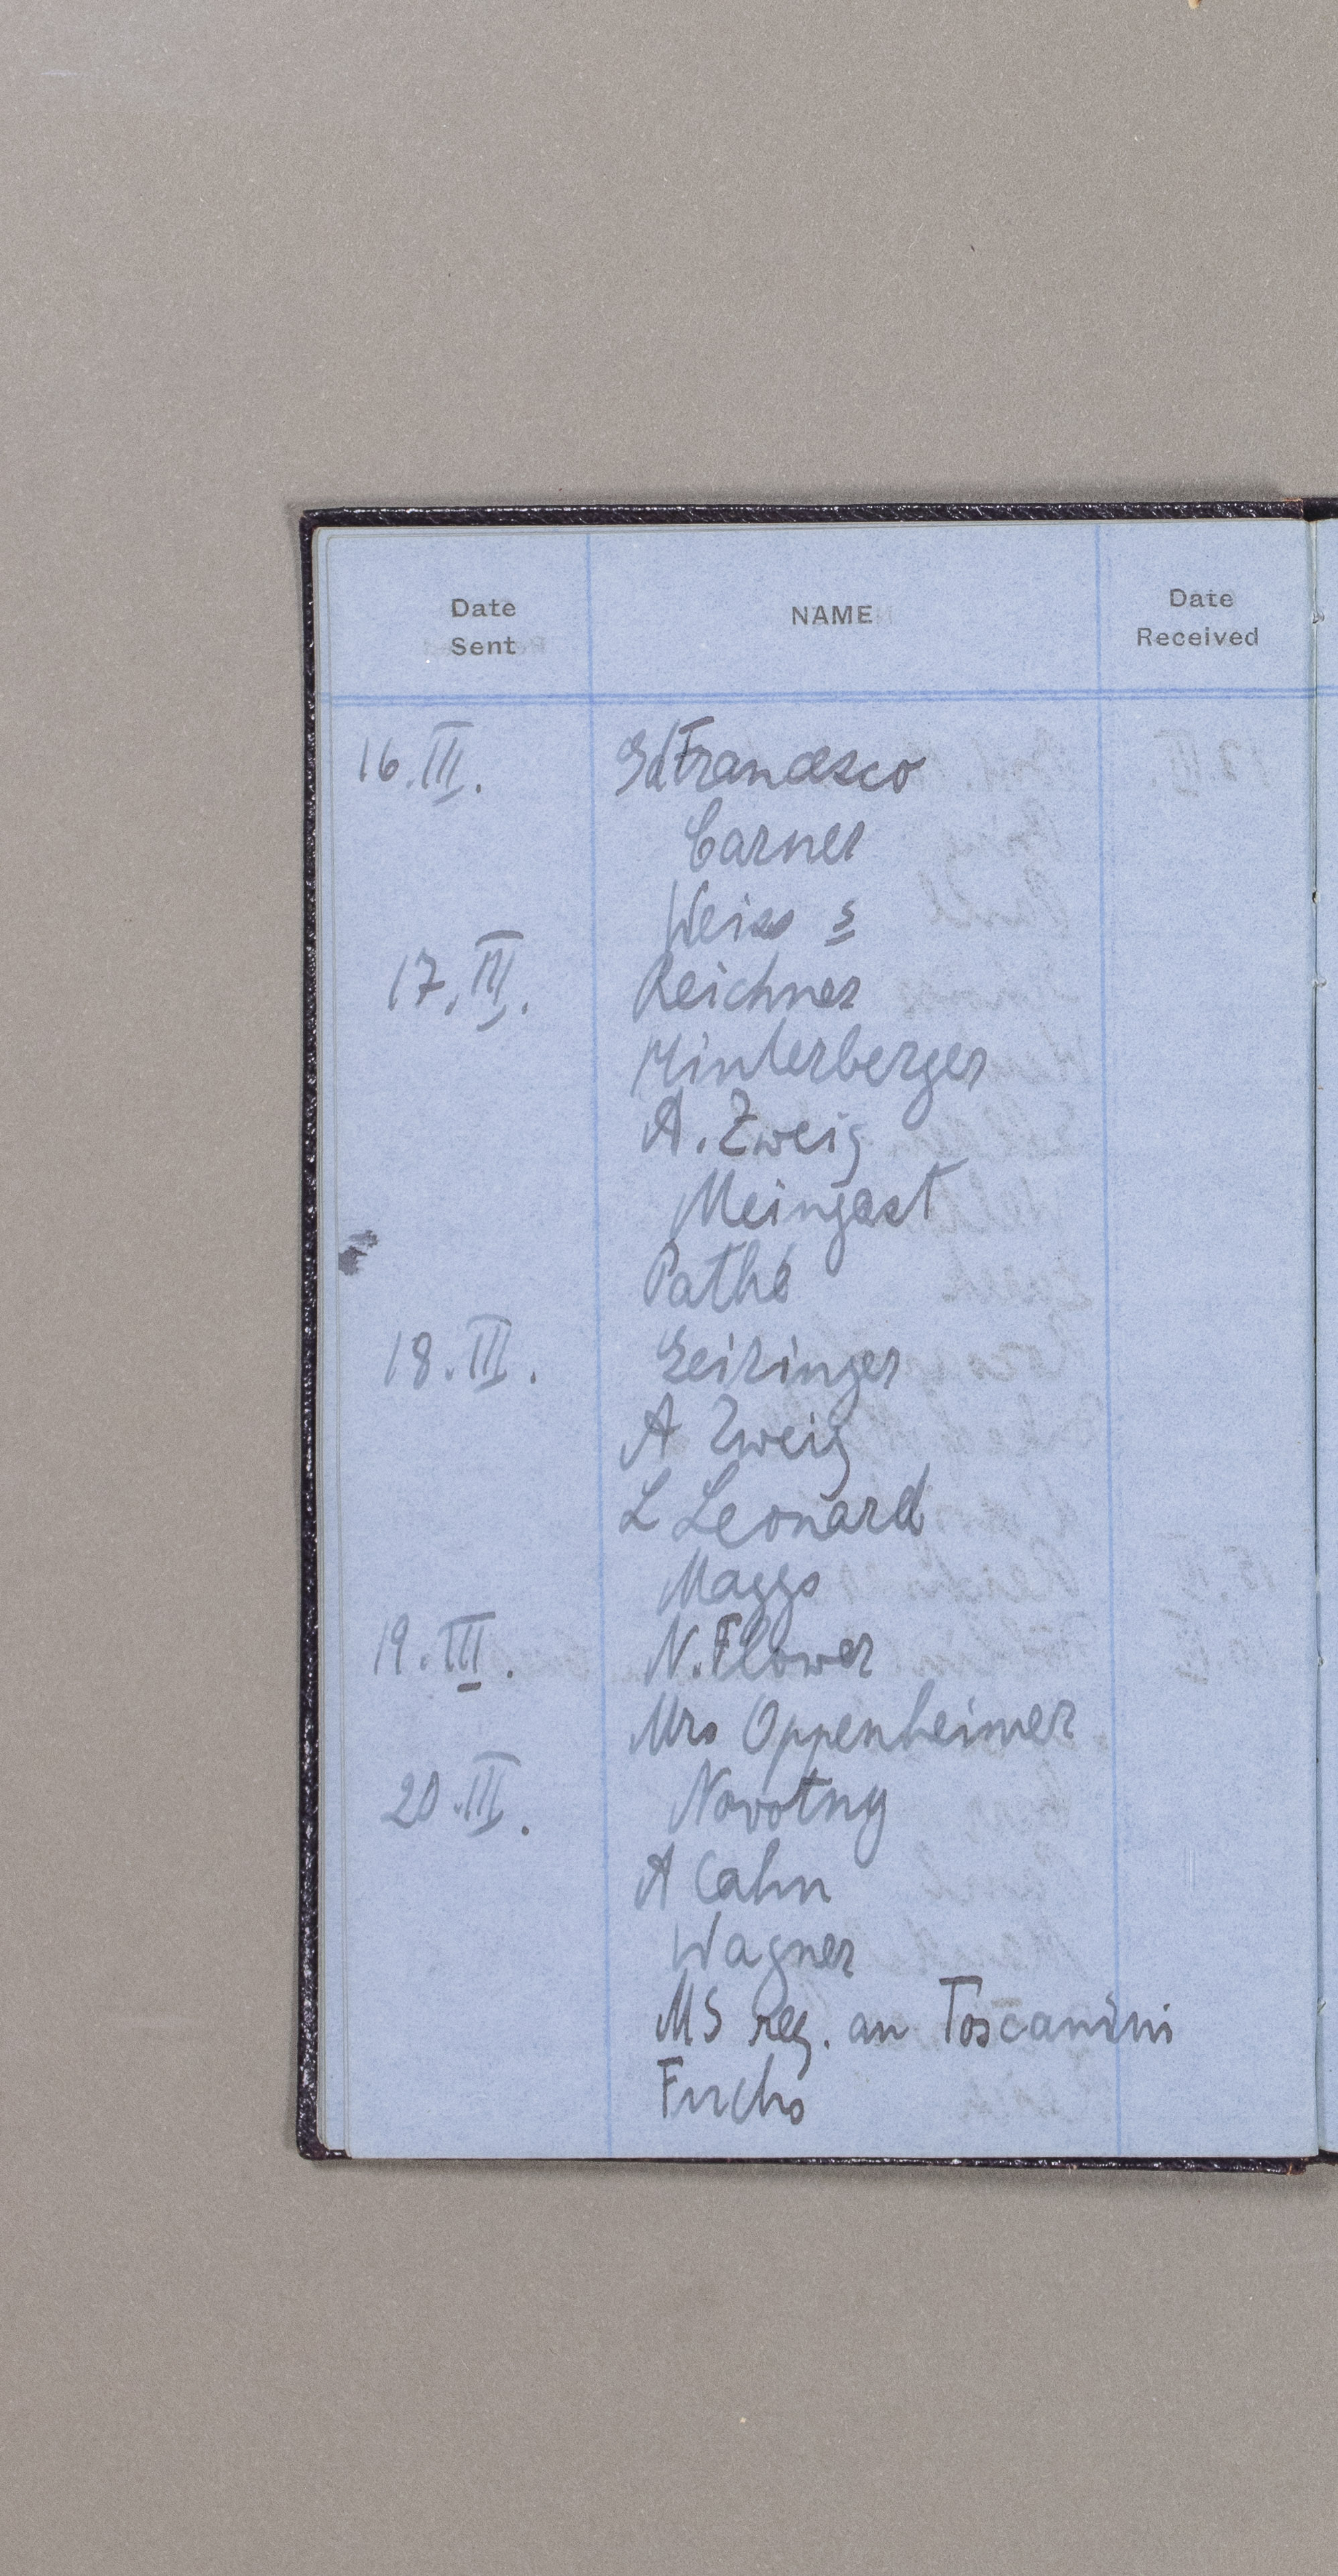 Date Sent NAME Date Received
16.III. Francesco
Carner
Weiss s
17.III. Reichner
Hinterberger
A. Zweig
Meingast
Pathé
18.III. Geiringer
A Zweig
L Leonard
Maggs
19.III. N. Flower
Mrs Oppenheimer
20.III. Novotny
A Cahn
Wagner
MS reg. an Toscanini
Fuchs